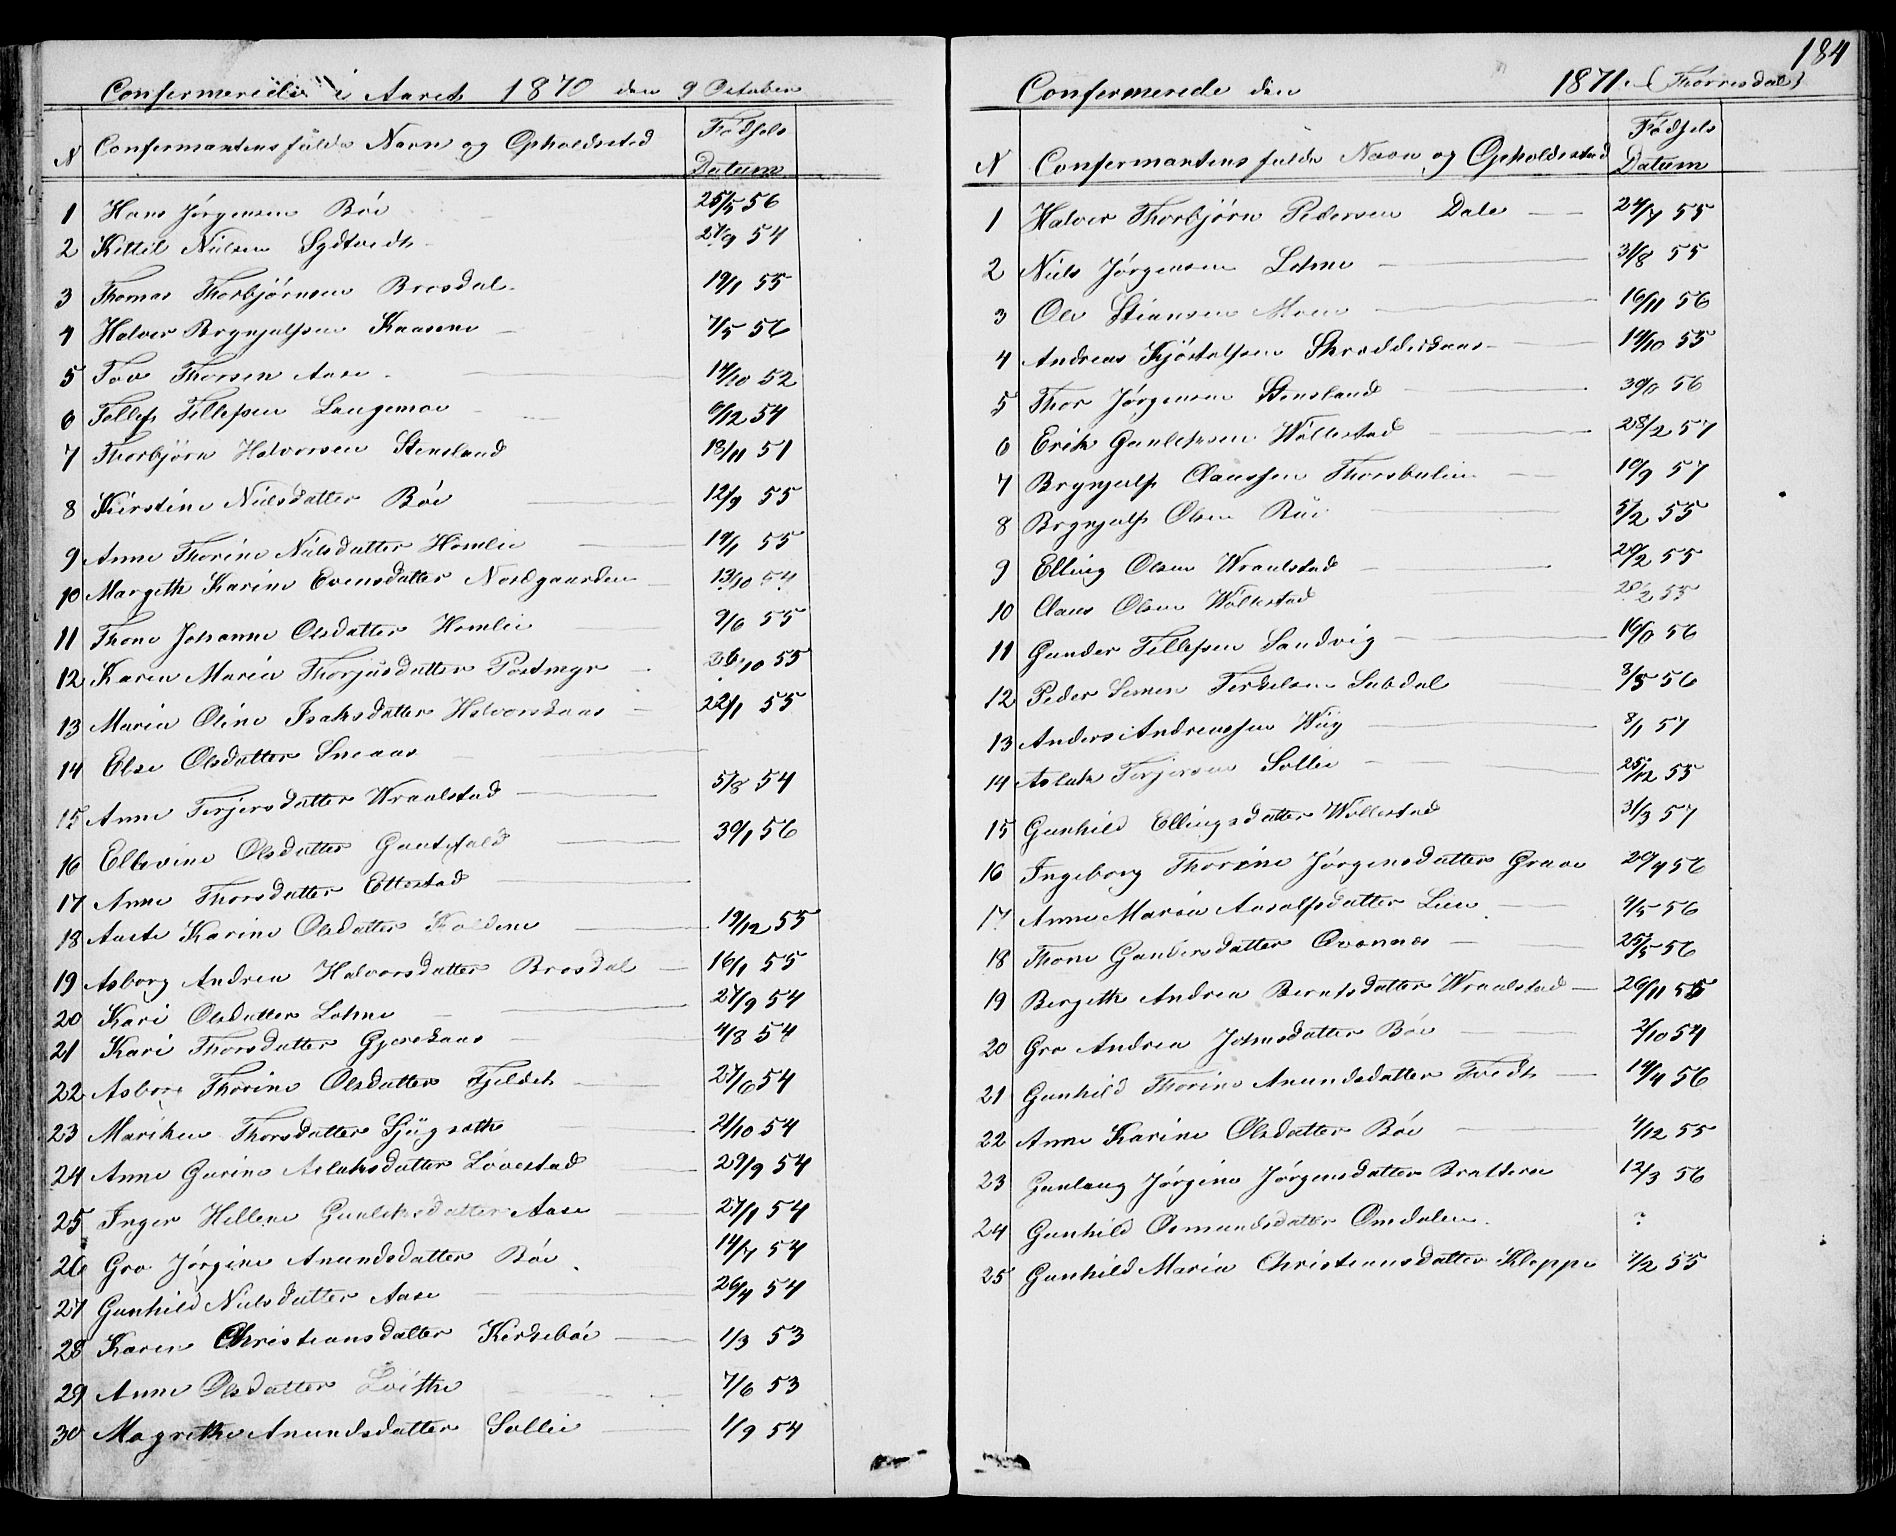 Confermerede i Aaret 1870 den 9 October
N Confermantens fulde Navn og Opholdssted Fødsels Datum
1 Hans Jørgensen Böe 25/5 56
2 Kittil Nielsen Sydtvedt 27/9 54
3 Thomas Thorbjørnsen Brosdal 19/1 55
4 Halvor Brynjulfsen Kaasene 7/5 56
5 Tov Thorsen Aase 14/10 52
6 Tellef Tellefsen Langemoe 6/12 54
7 Thorbjørn Halvorsen Stensland 18/11 51
8 Kirstine Nielsdatter Böe 12/9 55
9 Anne Thorine Nielsdatter Homlie 19/1 55
10 Margith Karine Evensdatter Nordgaarden 13/10 54
11 Thone Johanne Olsdatter Homlie 9/6 55
12 Karen Maria Thorjusdatter Postmyr 26/10 55
13 Maria Oline Isaksdatter Halvorsaas 22/1 55
14 Else Olsdatter Sneaas
15 Anne Terjersdatter Wraalstad 5/8 54
16 Ellevine Olsdatter Gautefald 30/1 56
17 Anne Thorsdatter Ettestad
18 Aaste Karine Olsdatter Foldene 19/12 55
19 Asborg Andrea Halvorsdatter Brosdal 16/1 55
20 Kari Olsdatter Lohne 27/9 54
21 Kari Thorsdatter Gjeresaas 4/8 54
22 Asborg Thorine Olsdatter Fjeldet 27/6 54
23 Mariken Thorsdatter 21/10 54
24 Anne Gurine Aslaksdatter Lövestad 29/9 54
25 Inger Hellene Gunleksdatter Aase 27/1 54
26 Gro Jørgine Anundsdatter Böe 14/7 54
27 Gunhild Nielsdatter Aase 26/4 54
28 Karen Christiansdatter Kirkeböe 1/3 53
29 Anne Olsdatter 7/6 53
30 Magrethe Anundsdatter Sollie 1/9 54
184
Confermerede den 1871. (Thorresdal)
N Confermantens fulde Navn og Opholdsstad Fødsels Datum
1 Halvor Thorbjørn Pedersen Dale 24/7 55
2 Niels Jørgensen Lohne 31/8 55
3 Ole Stiansen Moen 16/11 56
4 Andreas Kjøstolfsen Skreddersaas 14/10 55
5 Thor Jørgensen Stensland 56
6 Erik Gunleksen Wöllestad 28/2 57
7 Brynjulf Claussen Thorsbulien 10/9 57
8 Brynjulf Olsen 5/2 55
9 Elling Olsen Wraalstad 20/2 55
10 Claus Olsen Wöllestad 20/2 55
11 Gunder Tellefsen Sandvig 56
12 Peder Semen Terkelsen Subdal 8/5 56
13 Anders Andreassen Wüg 8/1 57
14 Aslak Terjersen Sollie 25/12 55
15 Gunhild Ellingsdatter Wöllestad 31/3 57
16 Ingeborg Thorine Jørgensdatter Grave 20/9 56
17 Anne Maria Aasolfsdatter Lien 9/5 56
18 Thone Gundersdatter Qvennes 25/5 56
19 Bergith Andrea Berntsdatter Wraalstad 26/11 55
20 Gro Andrea Johnsdatter Böe 2/10 54
21 Gunhild Thorine Anundsdatter Tvedt 14/4 56
22 Anne Karine Olsdatter Böe 4/12 55
23 Gunlaug Jørgine Jørgensdatter Brattern 12/3 56
24 Gunhild Osmundsdatter Omdalen ?
25 Gunhild Maria Christiansdatter Kleppe 7/2 55